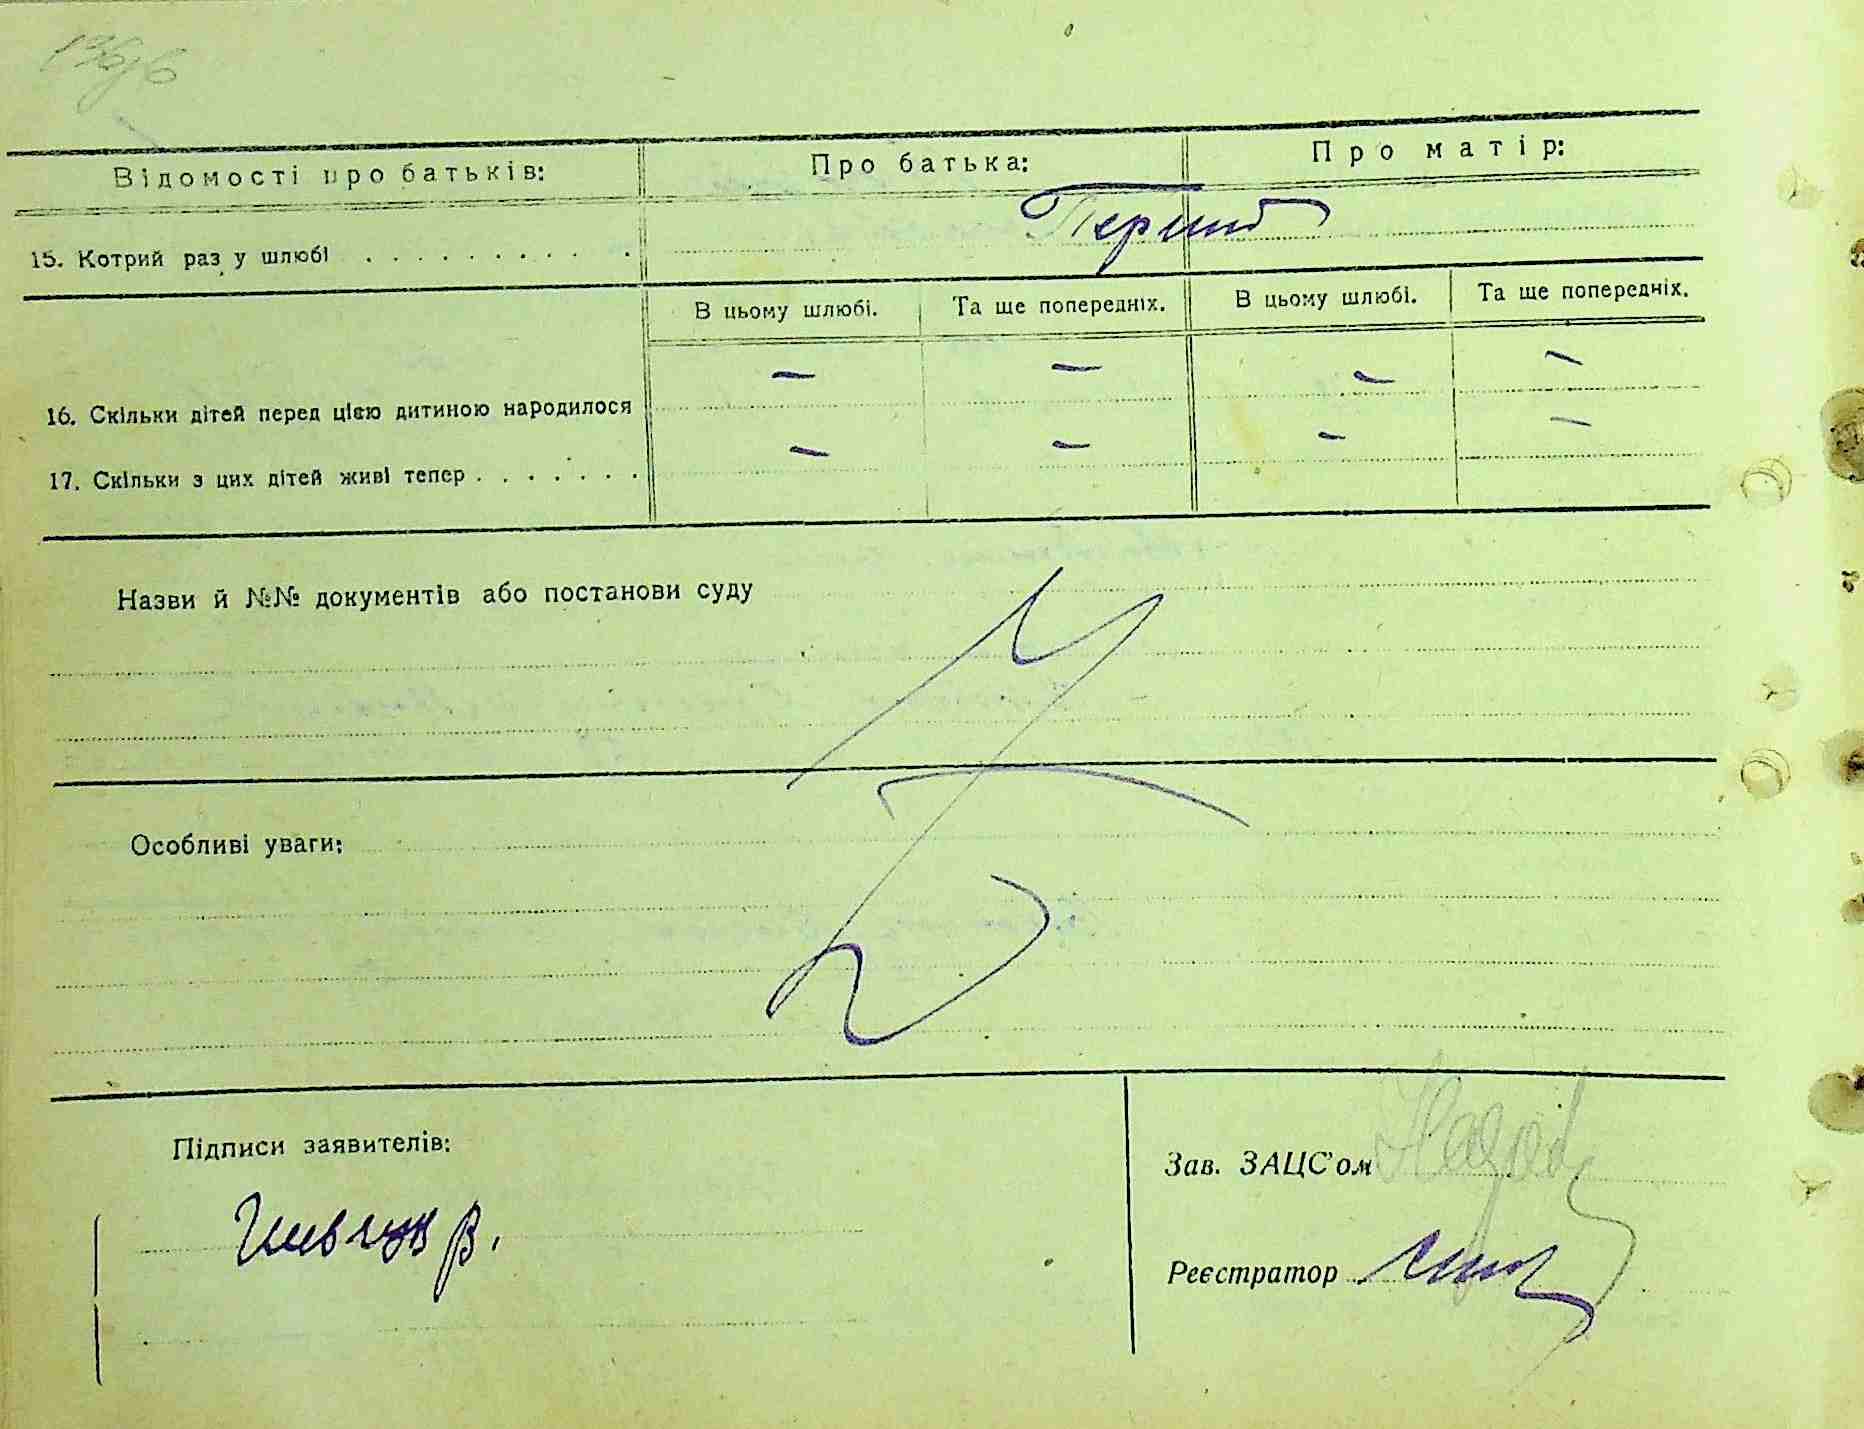 Відомості про батьків: Про батька: Про матір:
15. Котрий раз у шлюбі . . . . . . . . . . Перший
В цьому шлюбі. Та ще попередніх. В цьому шлюбі. Та ще попередніх.
— — — —
16. Скільки дітей перед цією дитиною народилося
— — — —
17. Скільки з цих дітей живі тепер . . . . . . .
Назви й №№ документів або постанови суду
Особливі уваги:
Підписи заявителів:
Зав. ЗАЦС'ом
В.
Реєстратор